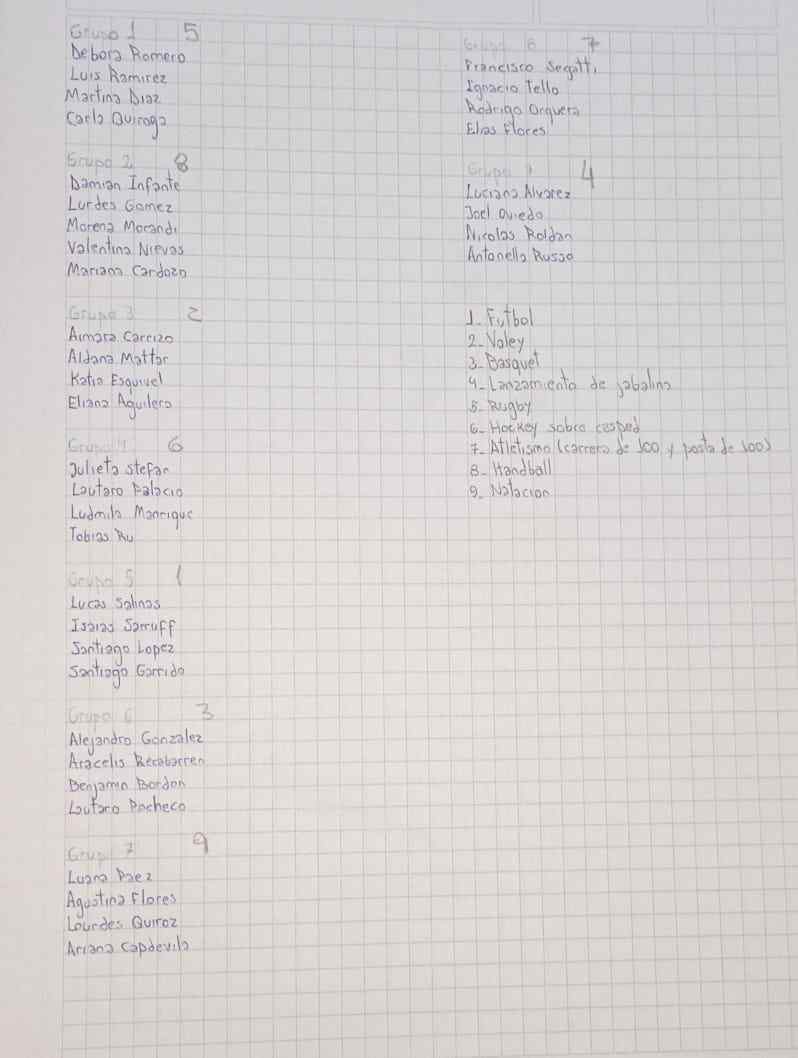 Grupo 1 5
Debora Romero
Luis Ramirez
Martina Diaz
Carla Quiroga
Grupo 2 8
Damian Infante
Lurdes Gomez
Morena Morandi
Valentina Nievas
Mariana Cardozo
Grupo 3 2
Aimara Carrizo
Aldana Mattar
Katia Esquivel
Eliana Aguilera
Grupo 4 6
Julieta Stefan
Lautaro Palacio
Ludmila Manrique
Tobias Ru
Grupo 5 1
Lucas Salinas
Isaias Sarruff
Santiago Lopez
Santiago Garrido
Grupo 6 3
Alejandro Gonzalez
Aracelis Recabarren
Benjamin Bordon
Lautaro Pacheco
Grupo 7 9
Luana Paez
Agustina Flores
Lourdes Quiroz
Ariana Capdevila
Grupo 8 7
Francisco Segatti
Ignacio Tello
Rodrigo Orquera
Elias Flores
Grupo 9 4
Luciana Alvarez
Joel Oviedo
Nicolas Roldan
Antonella Russo
1- Futbol
2- Voley
3- Basquet
4- Lanzamiento de jabalina
5- Rugby
6- Hockey sobre cesped
7- Atletismo (carrera de 100 y posta de 100)
8- Handball
9- Natacion